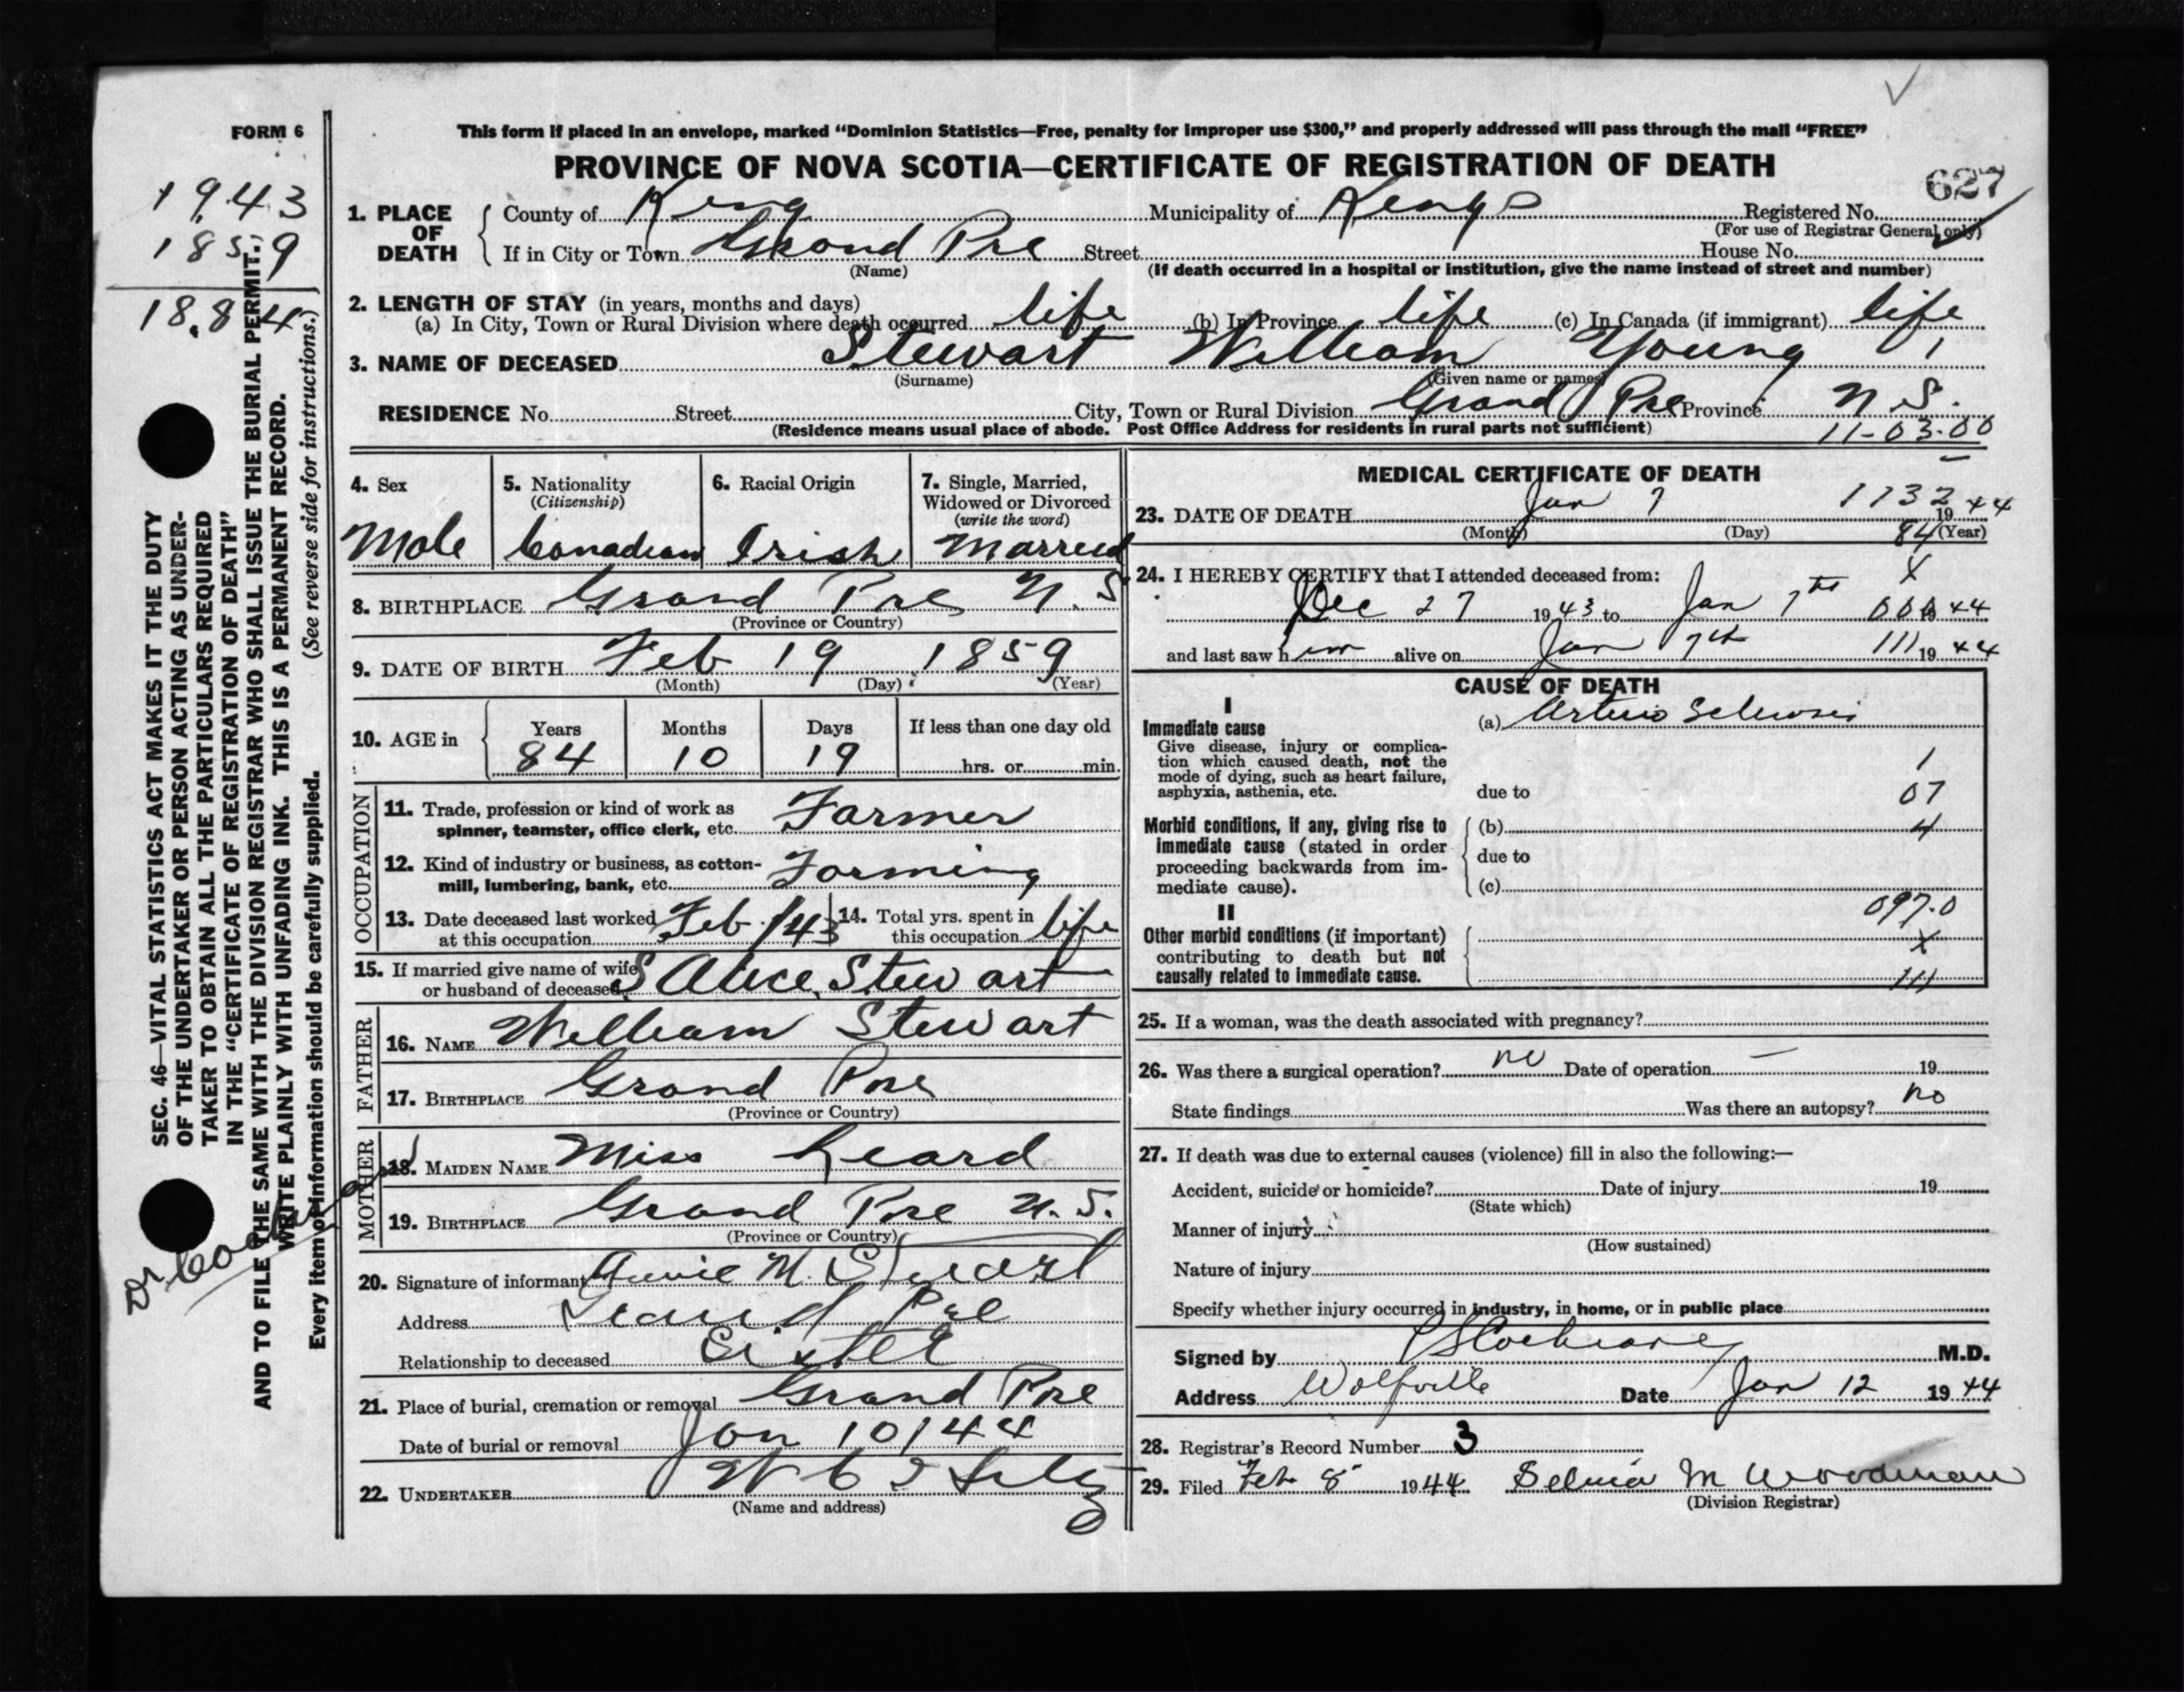 FORM 6
1943
1859
18.84
SEC. 46—VITAL STATISTICS ACT MAKES IT THE DUTY
OF THE UNDERTAKER OR PERSON ACTING AS UNDER-
TAKER TO OBTAIN ALL THE PARTICULARS REQUIRED
IN THE "CERTIFICATE OF REGISTRATION OF DEATH"
AND TO FILE THE SAME WITH THE DIVISION REGISTRAR WHO SHALL ISSUE THE BURIAL PERMIT.
WRITE PLAINLY WITH UNFADING INK. THIS IS A PERMANENT RECORD.
Every item of information should be carefully supplied. (See reverse side for instructions.)
Dr
This form if placed in an envelope, marked "Dominion Statistics—Free, penalty for improper use $300," and properly addressed will pass through the mail "FREE"
PROVINCE OF NOVA SCOTIA—CERTIFICATE OF REGISTRATION OF DEATH
627
1. PLACE OF DEATH County of King Municipality of Kings Registered No.
(For use of Registrar General only)
If in City or Town Grand Pre Street House No.
(Name) (If death occurred in a hospital or institution, give the name instead of street and number)
2. LENGTH OF STAY (in years, months and days)
(a) In City, Town or Rural Division where death occurred life (b) In Province life (c) In Canada (if immigrant) life
3. NAME OF DECEASED Stewart William Young 1
(Surname) (Given name or names)
RESIDENCE No. Street City, Town or Rural Division Grand Pre Province N.S.
(Residence means usual place of abode. Post Office Address for residents in rural parts not sufficient) 11-03-00
4. Sex Male
5. Nationality (Citizenship) Canadian
6. Racial Origin Irish
7. Single, Married, Widowed or Divorced (write the word) Married
8. BIRTHPLACE Grand Pre N.S.
(Province or Country)
9. DATE OF BIRTH Feb 19 1859
(Month) (Day) (Year)
10. AGE in Years 84 Months 10 Days 19 If less than one day old
hrs. or min.
OCCUPATION
11. Trade, profession or kind of work as
spinner, teamster, office clerk, etc. Farmer
12. Kind of industry or business, as cotton-
mill, lumbering, bank, etc. Farming
13. Date deceased last worked at this occupation Feb/43 14. Total yrs. spent in this occupation life
15. If married give name of wife
or husband of deceased S Alice Stewart
FATHER
16. NAME William Stewart
17. BIRTHPLACE Grand Pre
(Province or Country)
MOTHER
18. MAIDEN NAME Miss Leard
19. BIRTHPLACE Grand Pre N.S.
(Province or Country)
20. Signature of informant Annie M. Stewart
Address Grand Pre
Relationship to deceased Sister
21. Place of burial, cremation or removal Grand Pre
Date of burial or removal Jan 10/44
22. UNDERTAKER
(Name and address)
MEDICAL CERTIFICATE OF DEATH
1132
23. DATE OF DEATH Jan 7 1944
(Month) (Day) (Year)
84
24. I HEREBY CERTIFY that I attended deceased from: X
Dec 27 1943 to Jan 7th 000 1944
and last saw him alive on Jan 7th 111 1944
CAUSE OF DEATH
I
Immediate cause (a) Arterio Sclerosis
Give disease, injury or complica-
tion which caused death, not the
mode of dying, such as heart failure,
asphyxia, asthenia, etc. due to
1
07
4
Morbid conditions, if any, giving rise to
immediate cause (stated in order
proceeding backwards from im-
mediate cause).
(b)
due to
(c)
II
097.0
Other morbid conditions (if important)
contributing to death but not
causally related to immediate cause.
X
111
25. If a woman, was the death associated with pregnancy?
26. Was there a surgical operation? no Date of operation — 19
State findings Was there an autopsy? no
27. If death was due to external causes (violence) fill in also the following:—
Accident, suicide or homicide? Date of injury 19
(State which)
Manner of injury
(How sustained)
Nature of injury
Specify whether injury occurred in industry, in home, or in public place
Signed by Cochrane M.D.
Address Wolfville Date Jan 12 1944
28. Registrar's Record Number 3
29. Filed Feb 8 1944 M Woodman
(Division Registrar)